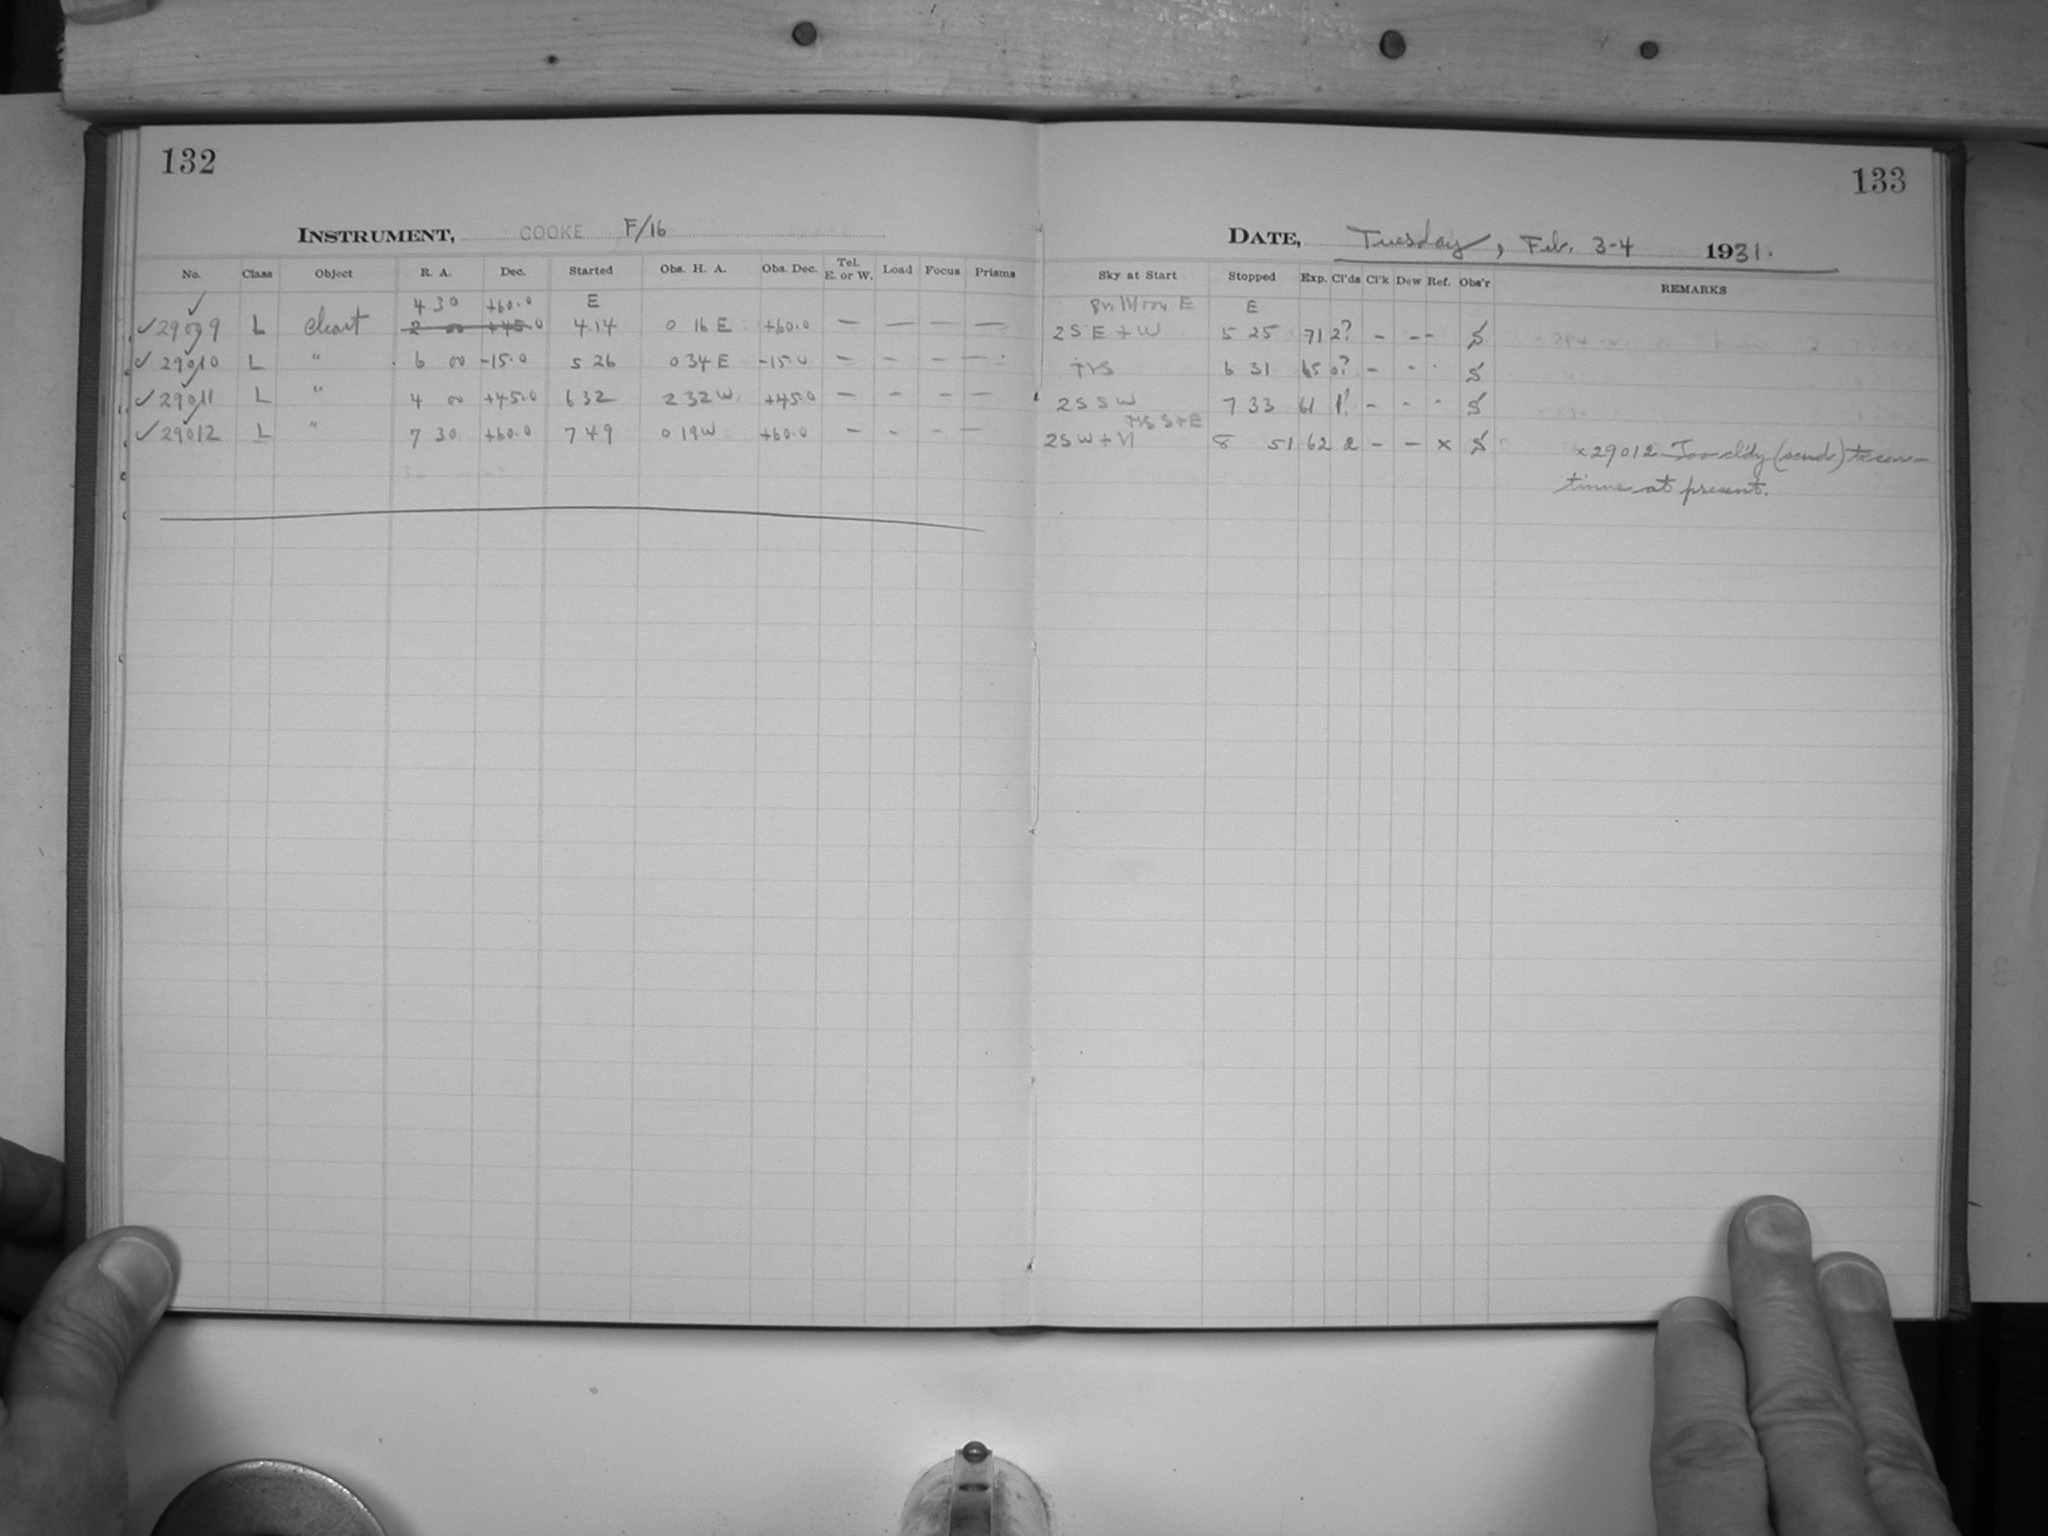 132
133
INSTRUMENT, COOKE F/16
DATE, Tuesday, Feb. 3-4 1931.
No. Class Object R. A. Dec. Started Obs. H. A. Obs. Dec. Tel. E. or W. Load Focus Prisms Sky at Start Stopped Exp. Cl'ds Cl'k Dew Ref. Obs'r REMARKS
✓ 4 30 +60.0 E Moon E E
✓29009 L Chart 2 00 +45.0 4 14 0 16 E +60.0 — — — — 2 S E + W 5 25 71 2? - -- S
✓29010 L " 6 00 -15.0 5 26 0 34 E -15.0 — - - — 6 31 65 0? - - · S
✓29011 L " 4 00 +45.0 6 32 2 32 W. +45.0 — — — — 2 S S W 7 33 61 1? - - - S
S+E
✓29012 L " 7 30 +60.0 7 49 0 19 W +60.0 — - - — 2 S W + N 8 51 62 2 - - x S x29012 Too cl'dy (scud) to con-
tinue at present.